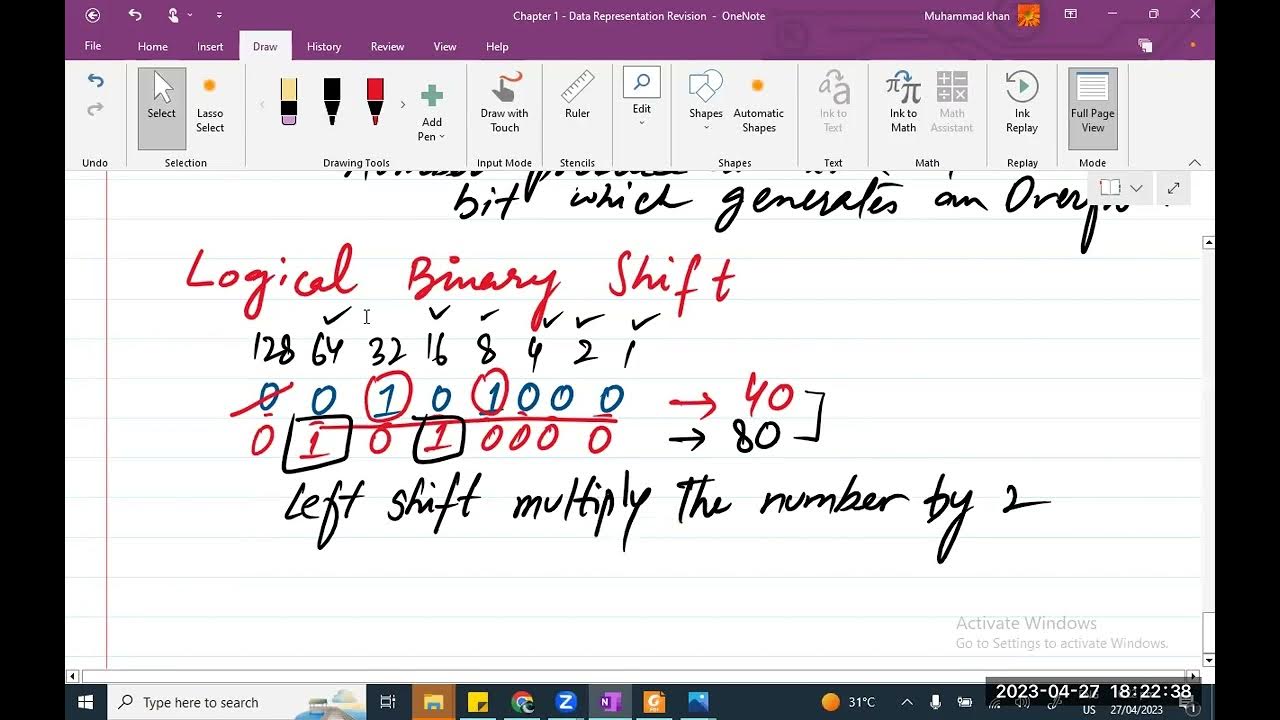 Chapter 1 - Data Representation Revision - OneNote
Muhammad khan
File Home Insert Draw History Review View Help
Select
Lasso Select
Add Pen
Draw with Touch
Ruler
Edit
Shapes
Automatic Shapes
Ink to Text
Ink to Math
Math Assistant
Ink Replay
Full Page View
Undo Selection Drawing Tools Input Mode Stencils Shapes Text Math Replay Mode
Number
bit which generates an
Logical Binary Shift
128 64 32 16 8 4 2 1
0 0 1 0 1 0 0 0 → 40
0 1 0 1 0 0 0 0 → 80
Left shift multiply the number by 2
Activate Windows
Go to Settings to activate Windows.
Type here to search
31°C
2023-04-27 18:22:38
US 27/04/2023